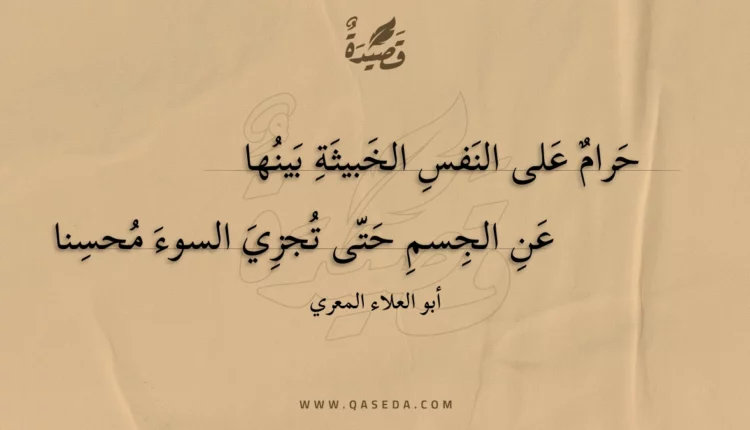 قَصِيْدَةٌ
حَرامٌ عَلى النَفسِ الخَبيثَةِ بَينُها
عَنِ الجِسمِ حَتّى تُجزِيَ السوءَ مُحسِنا
أبو العلاء المعري
WWW.QASEDA.COM